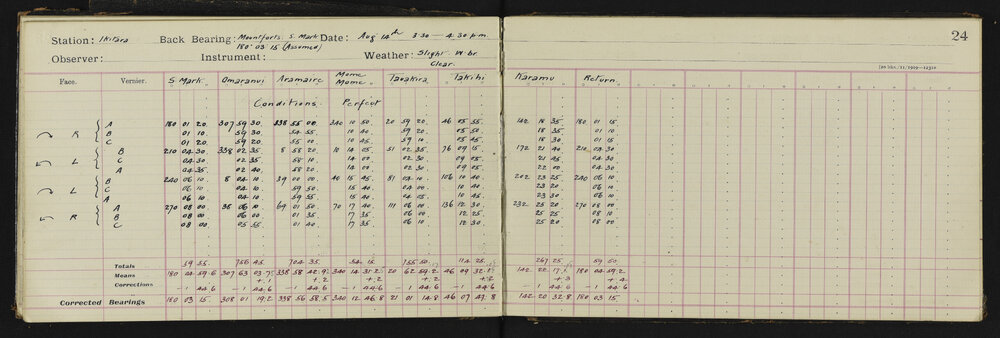 24
Station: Ikitara Back Bearing: Mountfort's S. Mark Date: Aug 14th 3.30 — 4.30 p.m.
180 03 15 (Assumed)
Observer: Instrument: Weather: Slight W. br.
Clear.
[20 bks./11/1919—12310
Face. Vernier. S Mark. Omaranui Aramaire Mome Mome Tavakira Takihi Karamu Return.
Conditions. Perfect
R A 180 01 20 307 59 30 338 55 00 340 10 50 20 59 20 46 05 55 142 18 35 180 01 15
B 01 10 59 30 54 55 10 40 59 20 05 50 18 35 01 10
C 01 20 59 20 55 00 10 45 59 10 05 45 18 30 01 15
L B 210 04 30 338 02 35 8 58 20 10 14 05 51 02 35 76 09 15 172 21 40 210 04 30
C 04 30 02 35 58 10 14 00 02 30 09 05 21 45 04 30
A 04 35 02 40 58 20 14 00 02 30 09 05 22 00 04 30
L B 240 06 10 8 04 10 39 00 00 40 15 45 81 04 10 106 10 40 202 23 25 240 06 10
C 06 10 04 10 59 50 15 40 04 00 10 40 23 20 06 10
A 06 10 04 10 59 55 15 40 04 05 10 45 23 30 06 10
R A 270 08 00 38 06 10 69 01 50 70 17 40 111 06 00 136 12 30 232 25 20 270 08 00
B 08 00 06 00 01 35 17 35 06 00 12 25 25 25 08 10
C 08 00 05 55 01 40 17 35 06 10 12 30 25 20 08 00
Totals 59 55 756 45 704 35 54 15 755 50 114 25 267 25 59 50
Means 180 04 59.6 307 63 03.7 338 58 42.9 340 14 31.2 20 62 59.2 46 09 32.1 142 22 17.1 180 04 59.2
Corrections — 1 44.6 — 1 44.6 — 1 44.6 — 1 44.6 — 1 44.6 — 1 44.6 — 1 44.6 — 1 44.6
Corrected Bearings 180 03 15. 308 01 19.2 338 56 58.5 340 12 46.8 21 01 14.8 46 07 47.8 142 20 32.8 180 03 15.